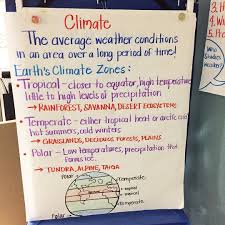 Climate
The average weather conditions
in an area over a long period of time!
Earth's Climate Zones:
• Tropical - closer to equator, high temperatures
little to high levels of precipitation
→ RAINFOREST, SAVANNA, DESERT ECOSYSTEMS
• Temperate - either tropical heat or arctic cold
hot summers, cold winters
→ GRASSLANDS, DECIDUOUS FORESTS, PLAINS
• Polar - Low temperatures, precipitation that
forms ice.
→ TUNDRA, ALPINE, TAIGA
Polar
temperate
tropical
Polar
3. H
4. W
Who
Studies